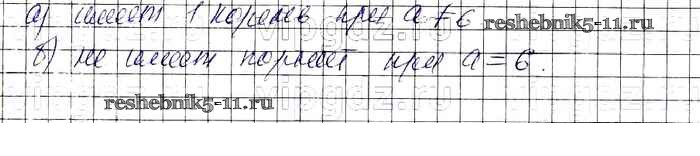 а) имеет 1 корень при a ≠ 6
reshebnik5-11.ru
б) не имеет корней при a = 6.
reshebnik5-11.ru